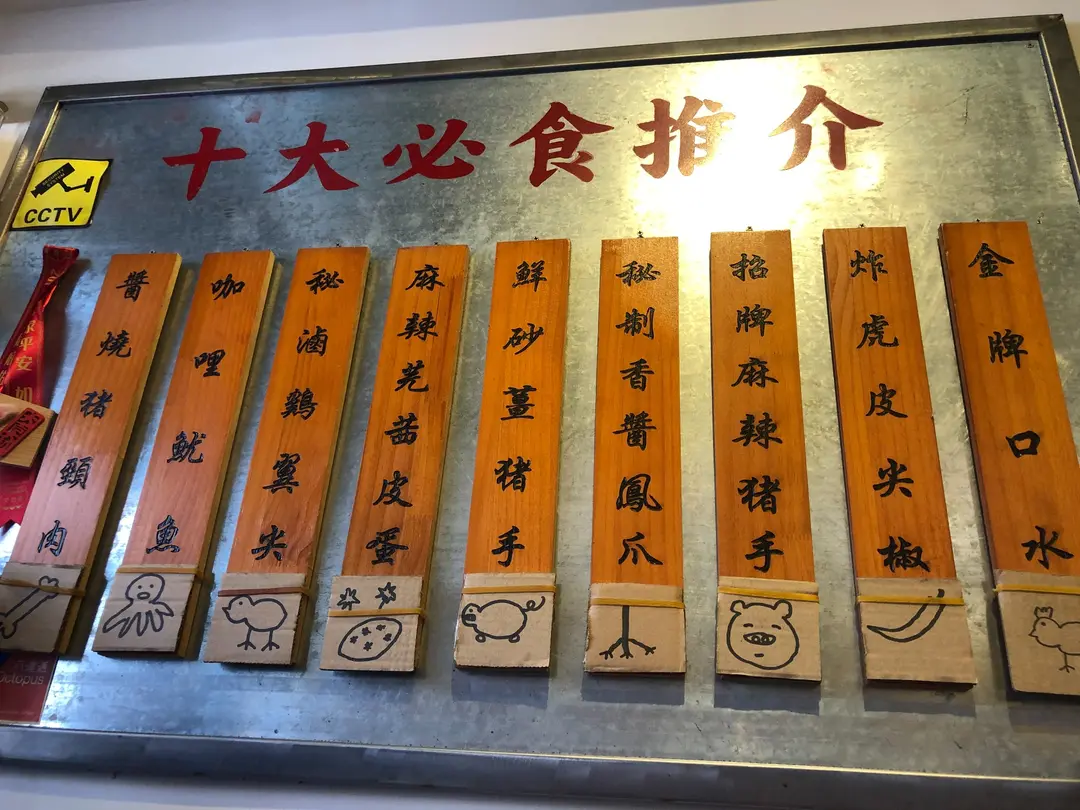 十大必食推介
CCTV
金牌口水
炸虎皮尖椒
招牌麻辣猪手
秘制香醬鳳爪
鮮砂薑猪手
麻辣芫茜皮蛋
秘滷鷄翼尖
咖哩魷魚
醬燒猪頸肉
平安
octopus